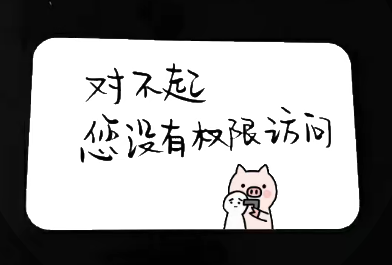 对不起
您没有权限访问